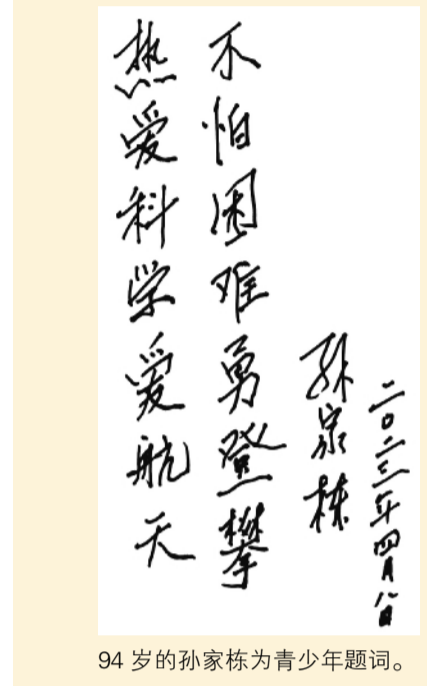 热爱科学爱航天
不怕困难勇登攀
孙家栋
二〇二三年四月八日
94 岁的孙家栋为青少年题词。